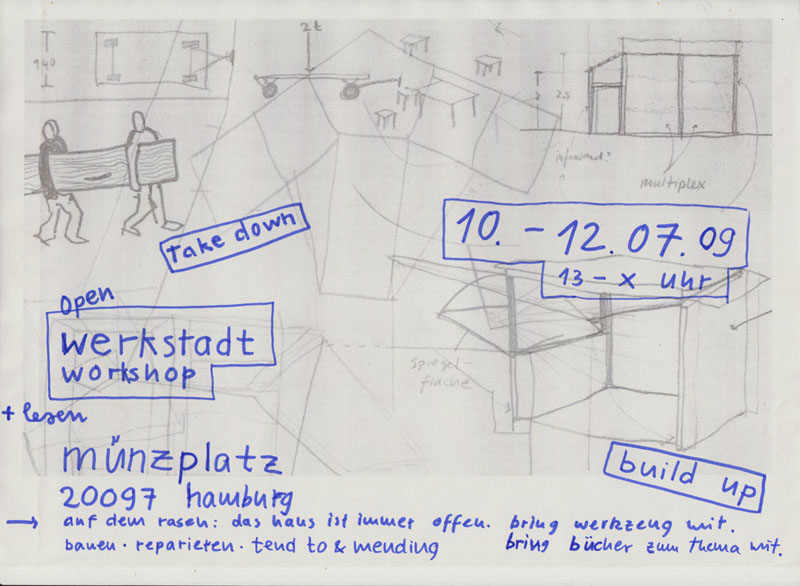 2t
140
2,5
multiplex
take down
10. - 12.07.09
13 - x uhr
open
werkstadt
workshop
spiegel-
fläche
+ lesen
münzplatz
20097 hamburg
build up
→ auf dem rasen: das haus ist immer offen. bring werkzeug mit.
bauen · reparieren · tend to & mending bring bücher zum thema mit.